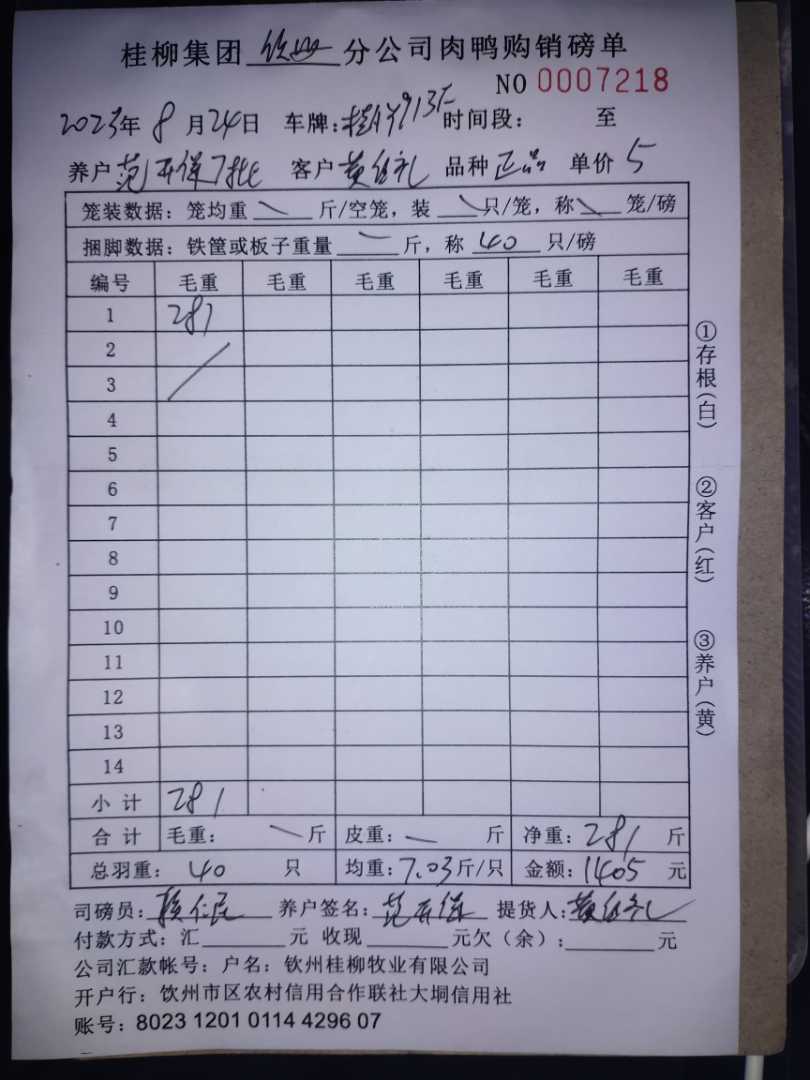 桂柳集团 钦州 分公司肉鸭购销磅单
NO 0007218
2023年 8 月 24日 车牌: 913F 时间段: 至
养户 范 客户 黄 礼 品种 正品 单价 5
笼装数据: 笼均重 ＼ 斤/空笼, 装 ＼ 只/笼, 称 ＼ 笼/磅
捆脚数据: 铁筐或板子重量 — 斤, 称 40 只/磅
编号 毛重 毛重 毛重 毛重 毛重 毛重
1 281
2
3
4
5
6
7
8
9
10
11
12
13
14
小计 281
合计 毛重: ＼ 斤 皮重: — 斤 净重: 281 斤
总羽重: 40 只 均重: 7.03 斤/只 金额: 1405 元
司磅员: 养户签名: 范 提货人: 黄 礼
付款方式: 汇 元 收现 元欠(余): 元
公司汇款帐号: 户名: 钦州桂柳牧业有限公司
开户行: 饮州市区农村信用合作联社大垌信用社
账号: 8023 1201 0114 4296 07
①存根(白)
②客户(红)
③养户(黄)